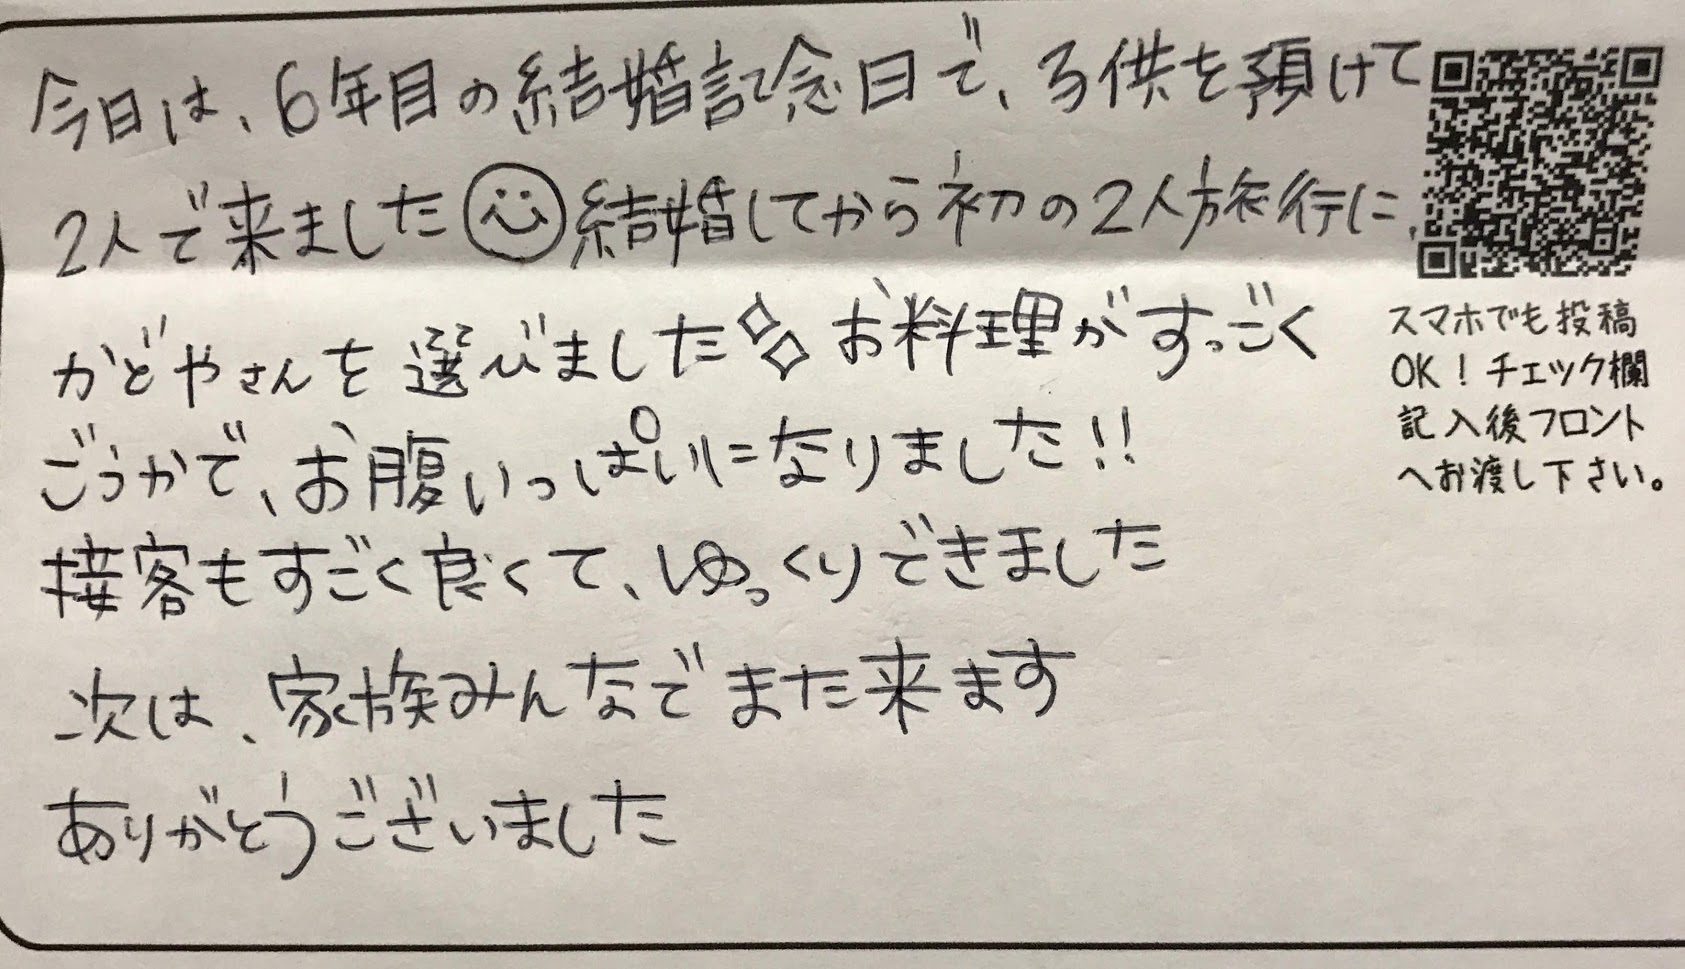 今日は、6年目の結婚記念日で、子供を預けて
2人で来ました☺結婚してから初の2人旅行に、
かどやさんを選びました✧✧お料理がすっごく
ごうかで、お腹いっぱいになりました!!
接客もすごく良くて、ゆっくりできました
次は、家族みんなでまた来ます
ありがとうございました
スマホでも投稿
OK！チェック欄
記入後フロント
へお渡し下さい。